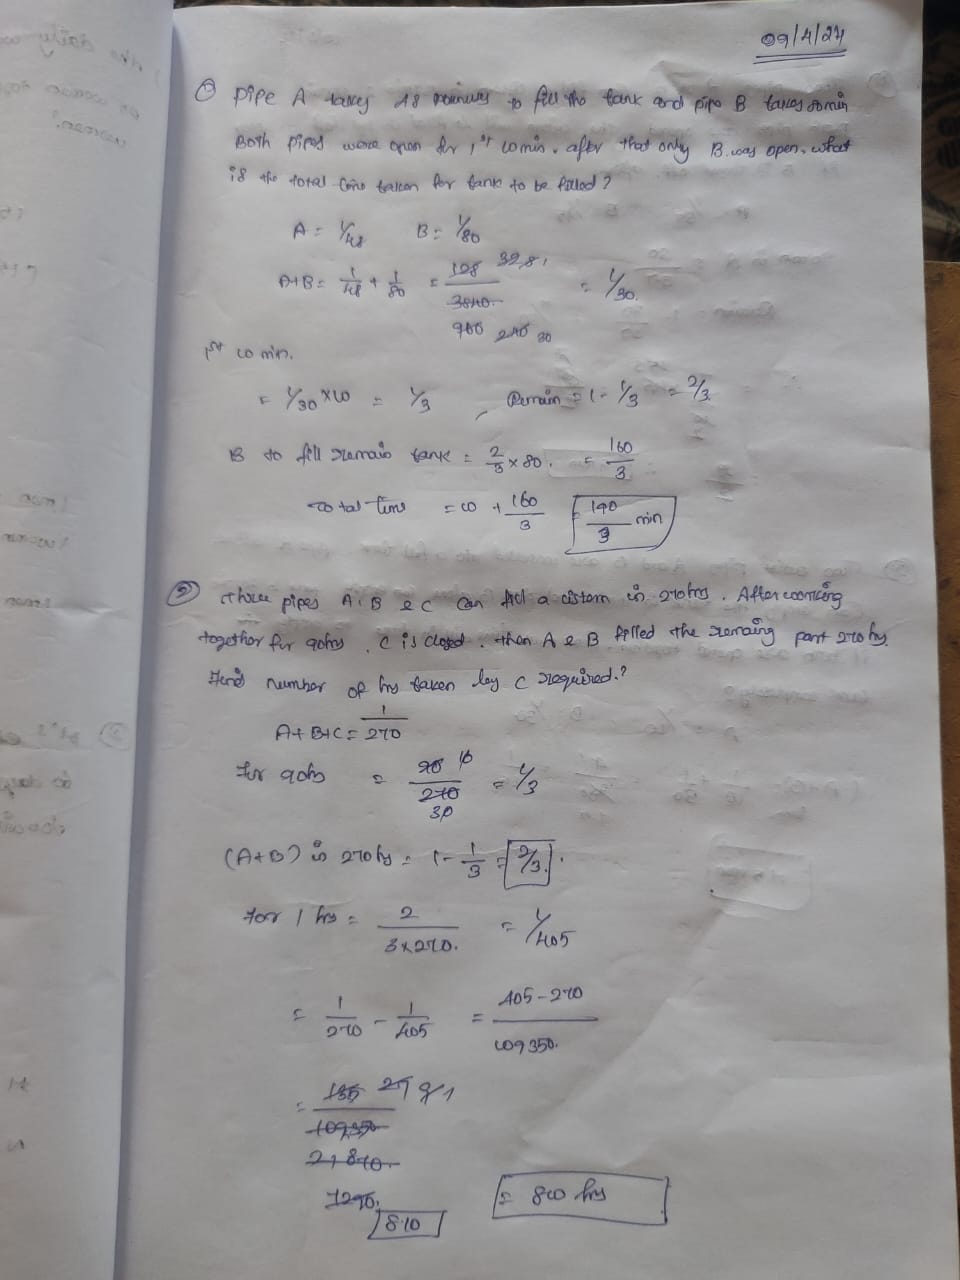 09/4/24
① Pipe A takes 48 minutes to fill the tank and pipe B takes 80min
Both pipes were open for 1st 10min. after that only B was open. what
is the total time taken for tank to be filled?
A = 1/48 B = 1/80
A+B = 1/48 + 1/80 = 128/3840 = 1/30
32 8 1
960 240 30
1st 10 min.
= 1/30 × 10 = 1/3 , Remain = 1 - 1/3 = 2/3
B to fill remain tank = 2/3 × 80. = 160/3
Total time = 10 + 160/3 = 190/3 min
② Three pipes A, B & C can fill a cistern in 270hrs. After working
together for 90hrs, C is closed. then A & B filled the remaing part 270 hr.
Find number of hrs taken by C required.?
A+B+C = 1/270
for 90hrs = 90/270 = 1/3
10
30
(A+B) in 270hrs = 1 - 1/3 = 2/3.
For 1 hrs = 2/3×270. = 1/405
= 1/270 - 1/405 = 405-270/109350.
= 135/109350 27 9 1
21870
7290.
810
= 810 hrs